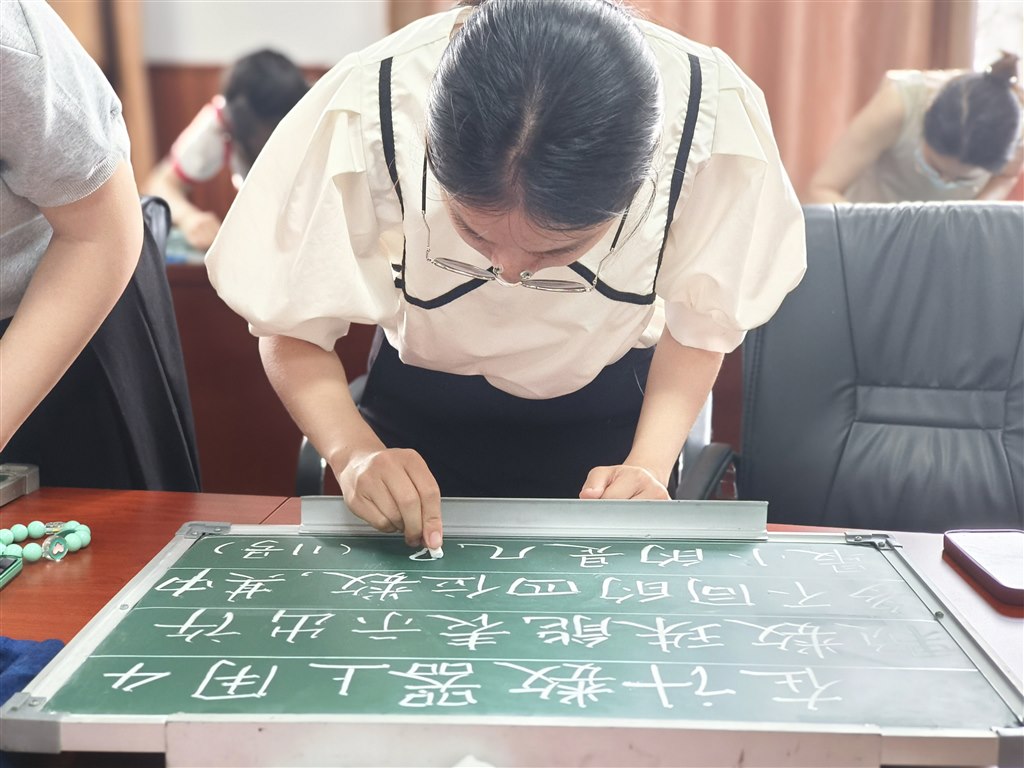 在计数器上用4
数珠能表示出许
多不同的四位数,其中
最小的是几?(11号)